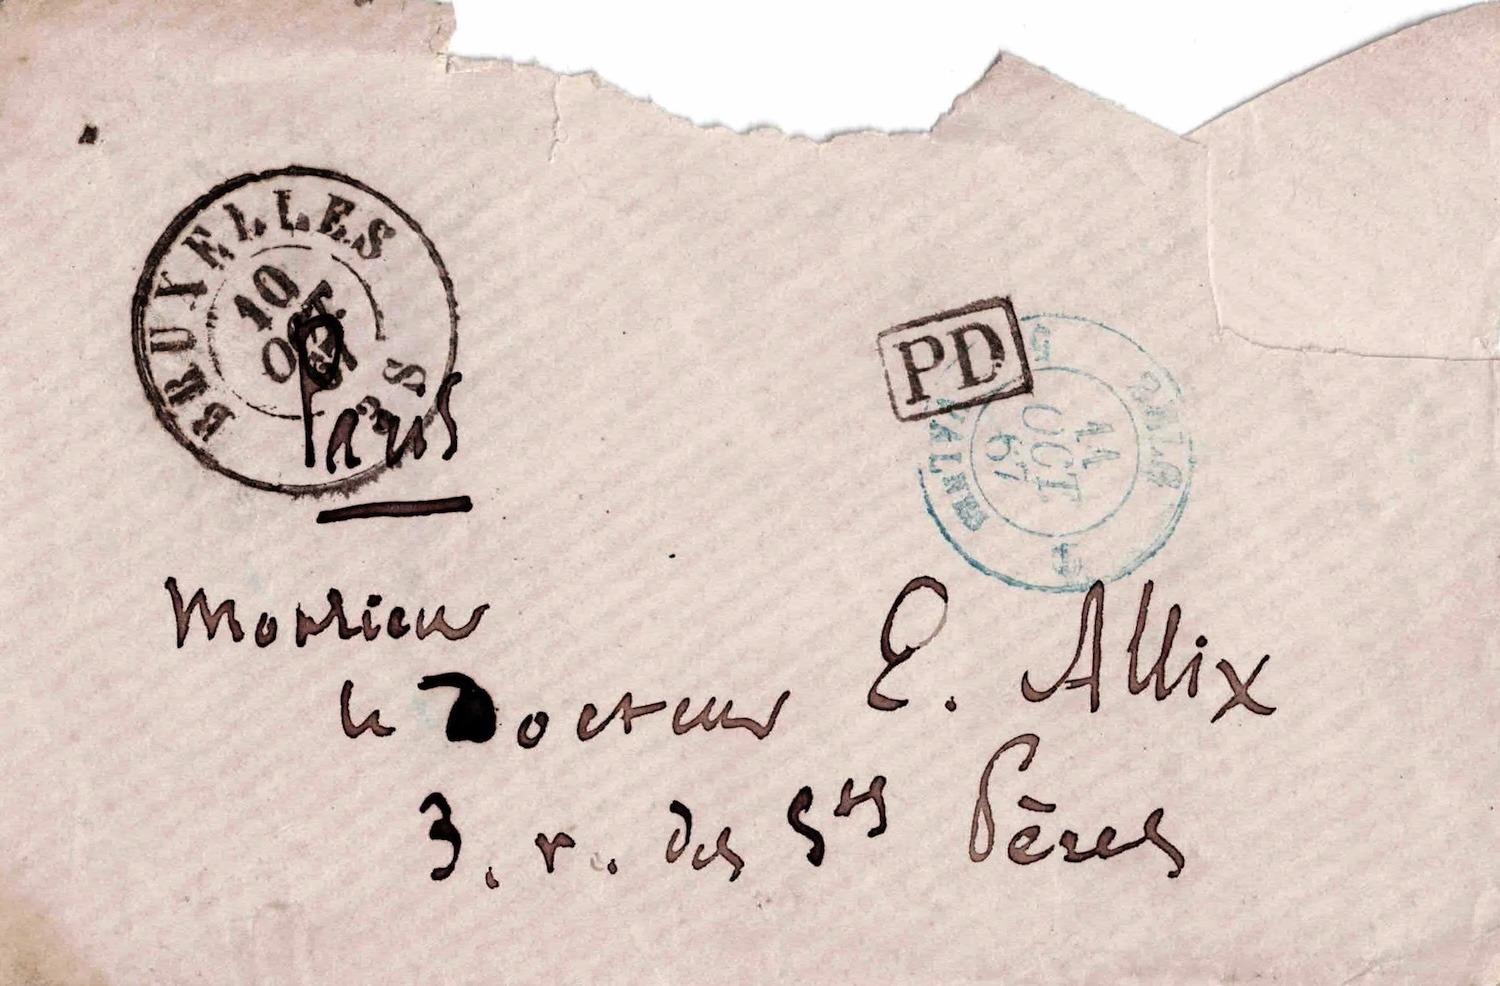 BRUXELLES
10
OCT.
67
PD
11
OCT
67
Paris
Monsieur
le Docteur E. Allix
3. r. des Sts Pères